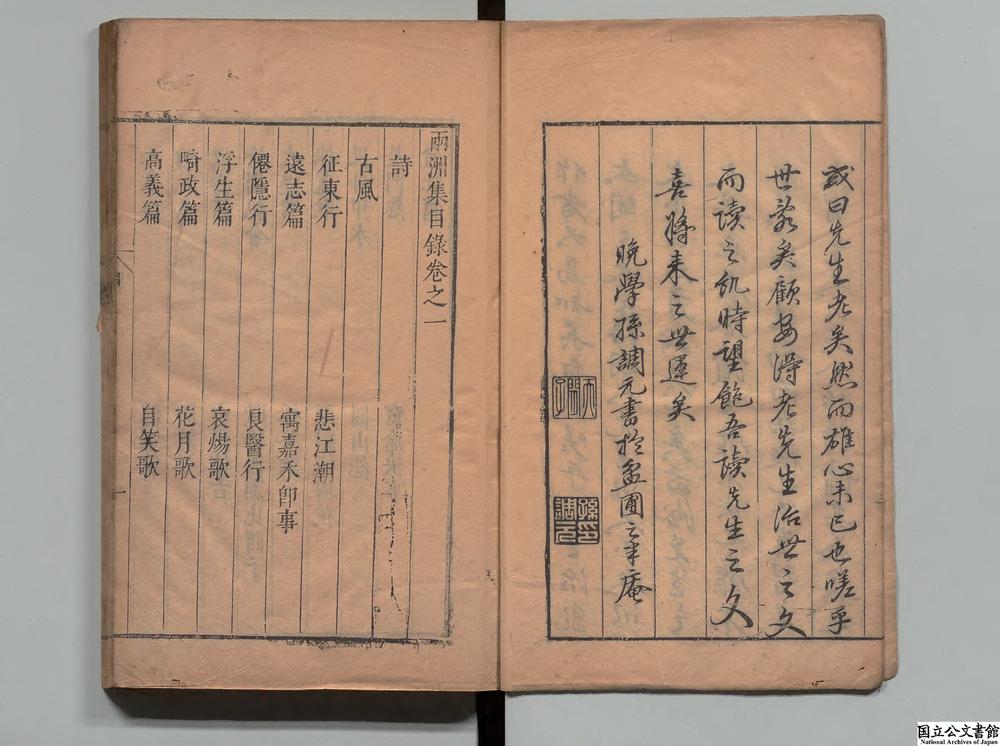 或曰先生老矣然而雄心未已也嗟乎
世亂矣顧安得老先生治世之文
而讀之飢時望飽吾讀先生之文
喜將來之世運矣
晚學孫調元書於盆圃之芽庵
孫印調元
兩洲集目錄卷之一
詩
古風
征東行
悲江潮
遠志篇
寓嘉禾即事
僊隱行
良醫行
浮生篇
哀煬歌
畸政篇
花月歌
高義篇
自笑歌
一
国立公文書館
National Archives of Japan